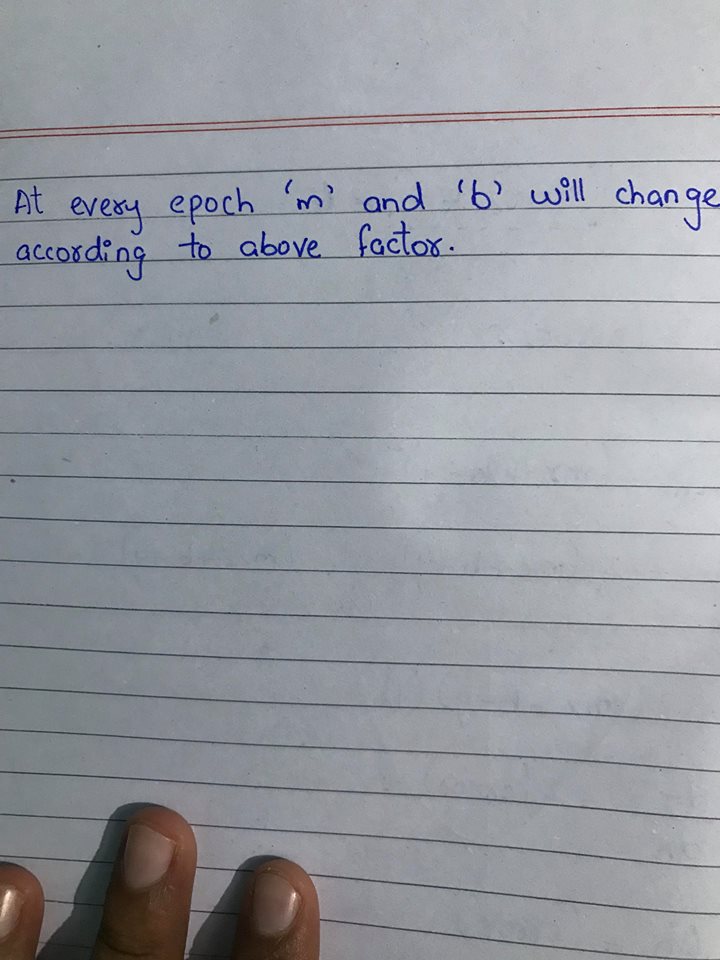 At every epoch 'm' and 'b' will change
according to above factor.